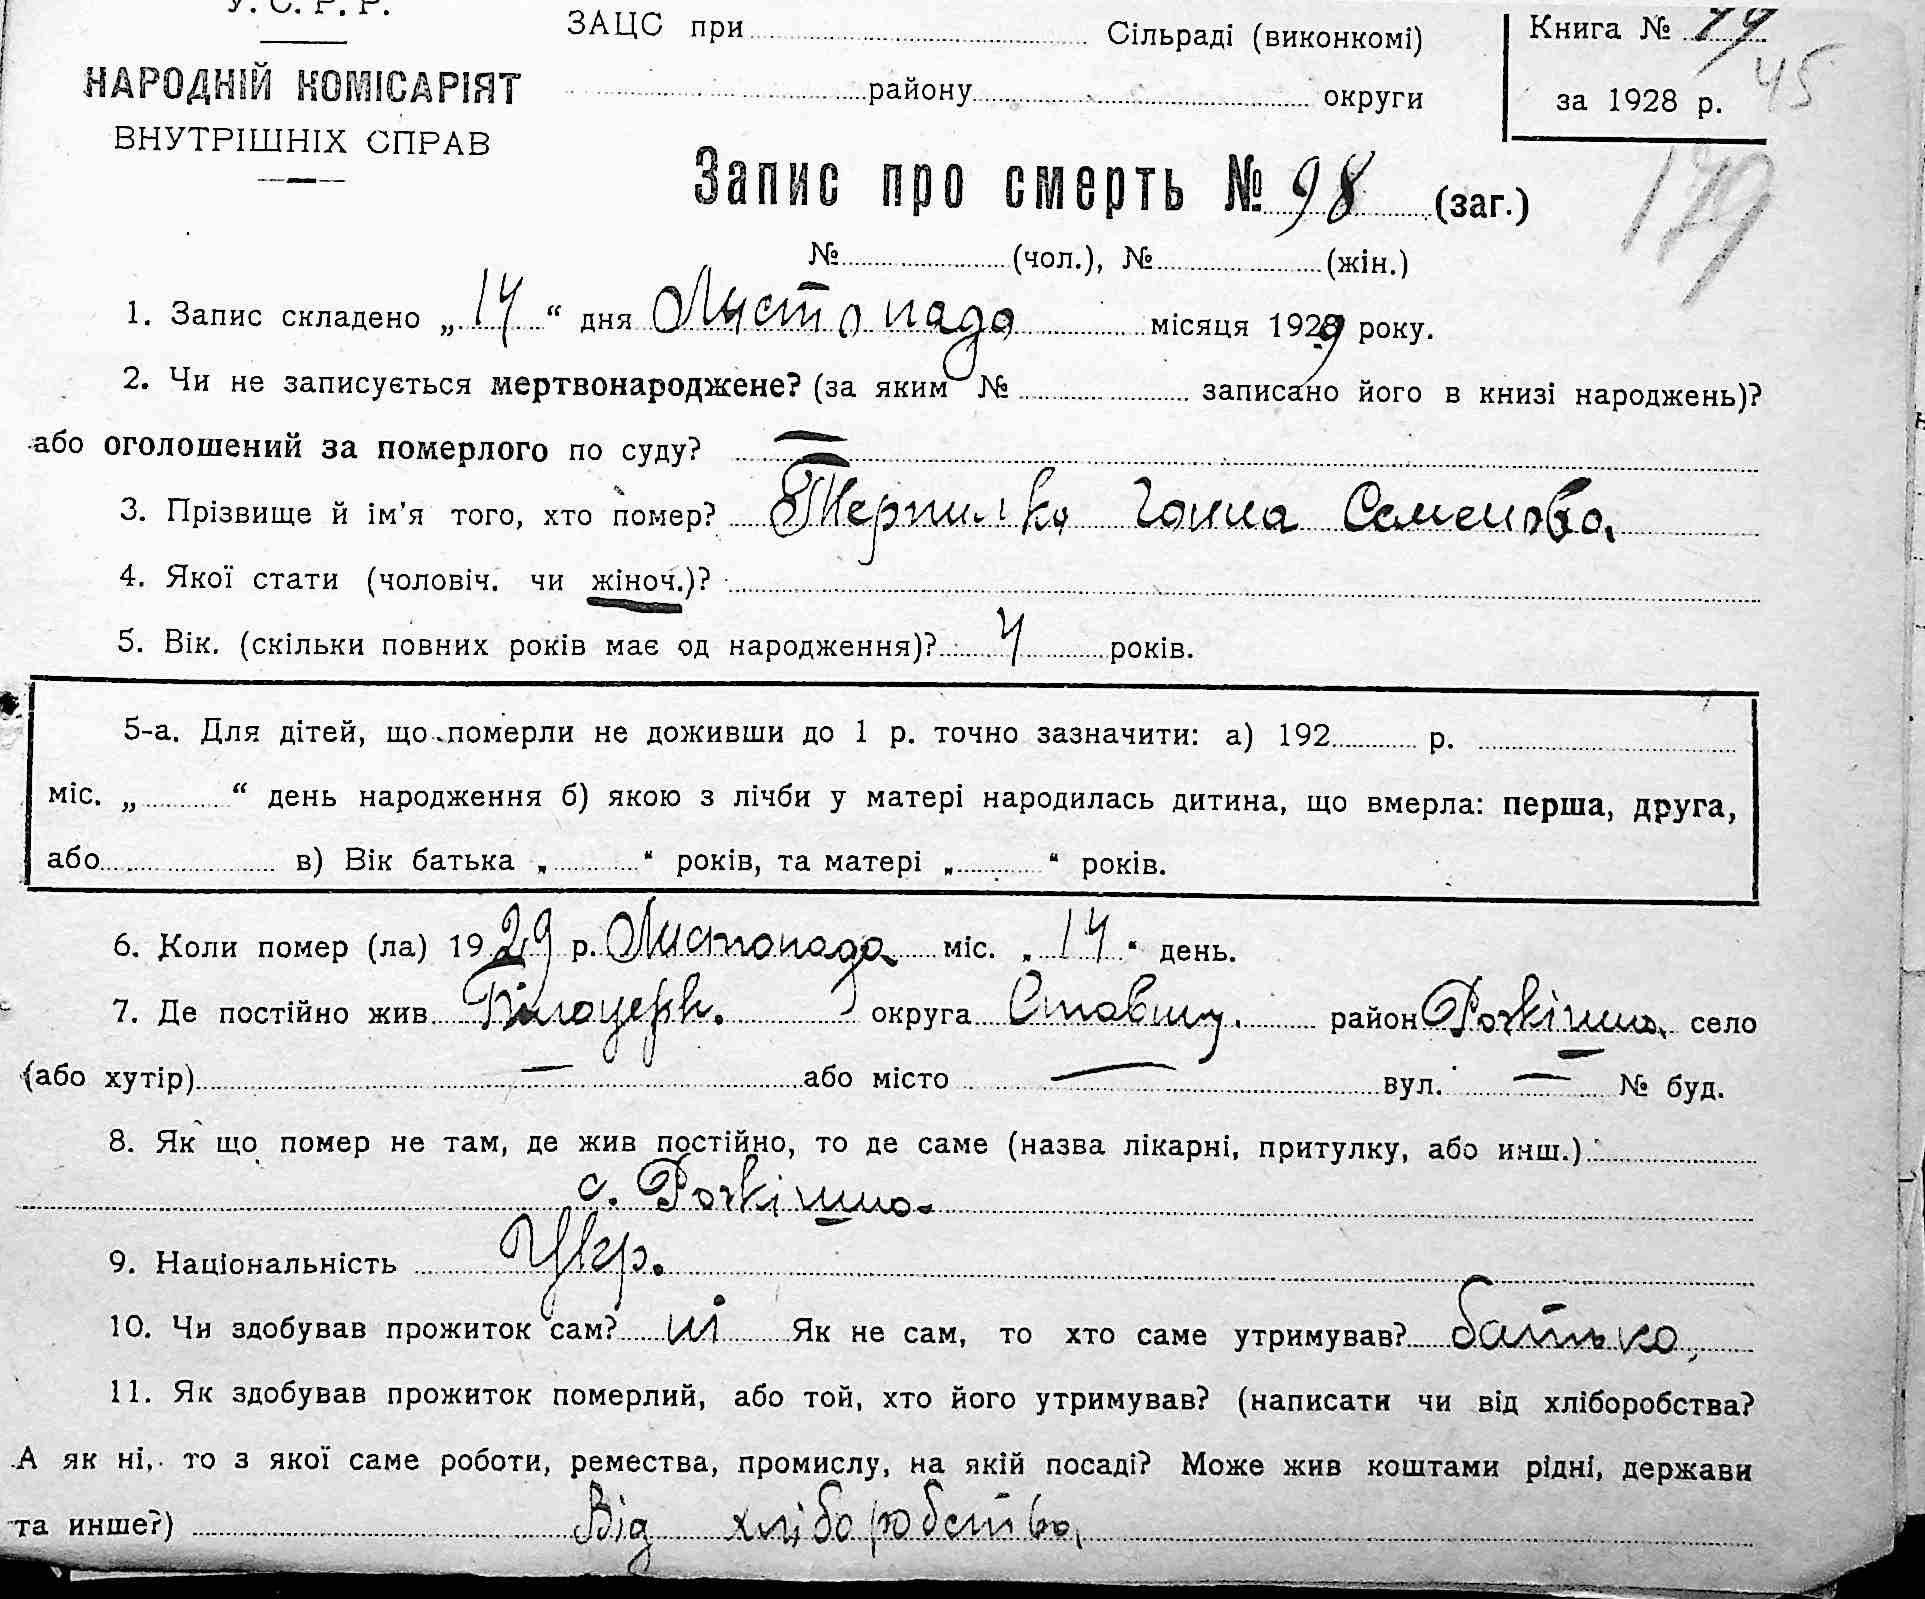 У. С. Р. Р.
НАРОДНІЙ КОМІСАРІЯТ
ВНУТРІШНІХ СПРАВ
ЗАЦС при Сільраді (виконкомі)
району округи
Книга №
45
за 1928 р.
179
Запис про смерть № 98 (заг.)
№ (чол.), № (жін.)
1. Запис складено „14“ дня Листопада місяця 1929 року.
2. Чи не записується мертвонароджене? (за яким № записано його в книзі народжень)?
або оголошений за померлого по суду? —
3. Прізвище й ім'я того, хто помер? Терпилка Ганна Семенова
4. Якої стати (чоловіч. чи жіноч.)?
5. Вік. (скільки повних років має од народження)? 4 років.
5-а. Для дітей, що померли не доживши до 1 р. точно зазначити: а) 192 р.
міс. „ “ день народження б) якою з лічби у матері народилась дитина, що вмерла: перша, друга,
або в) Вік батька „ “ років, та матері „ “ років.
6. Коли помер (ла) 1929 р. Листопада міс. „14“ день.
7. Де постійно жив Білоцерк. округа Ставищ. район село
(або хутір) — або місто — вул. — № буд.
8. Як що помер не там, де жив постійно, то де саме (назва лікарні, притулку, або инш.)
с.
9. Національність Укр.
10. Чи здобував прожиток сам? ні Як не сам, то хто саме утримував? батько
11. Як здобував прожиток померлий, або той, хто його утримував? (написати чи від хліборобства?
А як ні, то з якої саме роботи, ремества, промислу, на якій посаді? Може жив коштами рідні, держави
та инше?) Від хліборобства